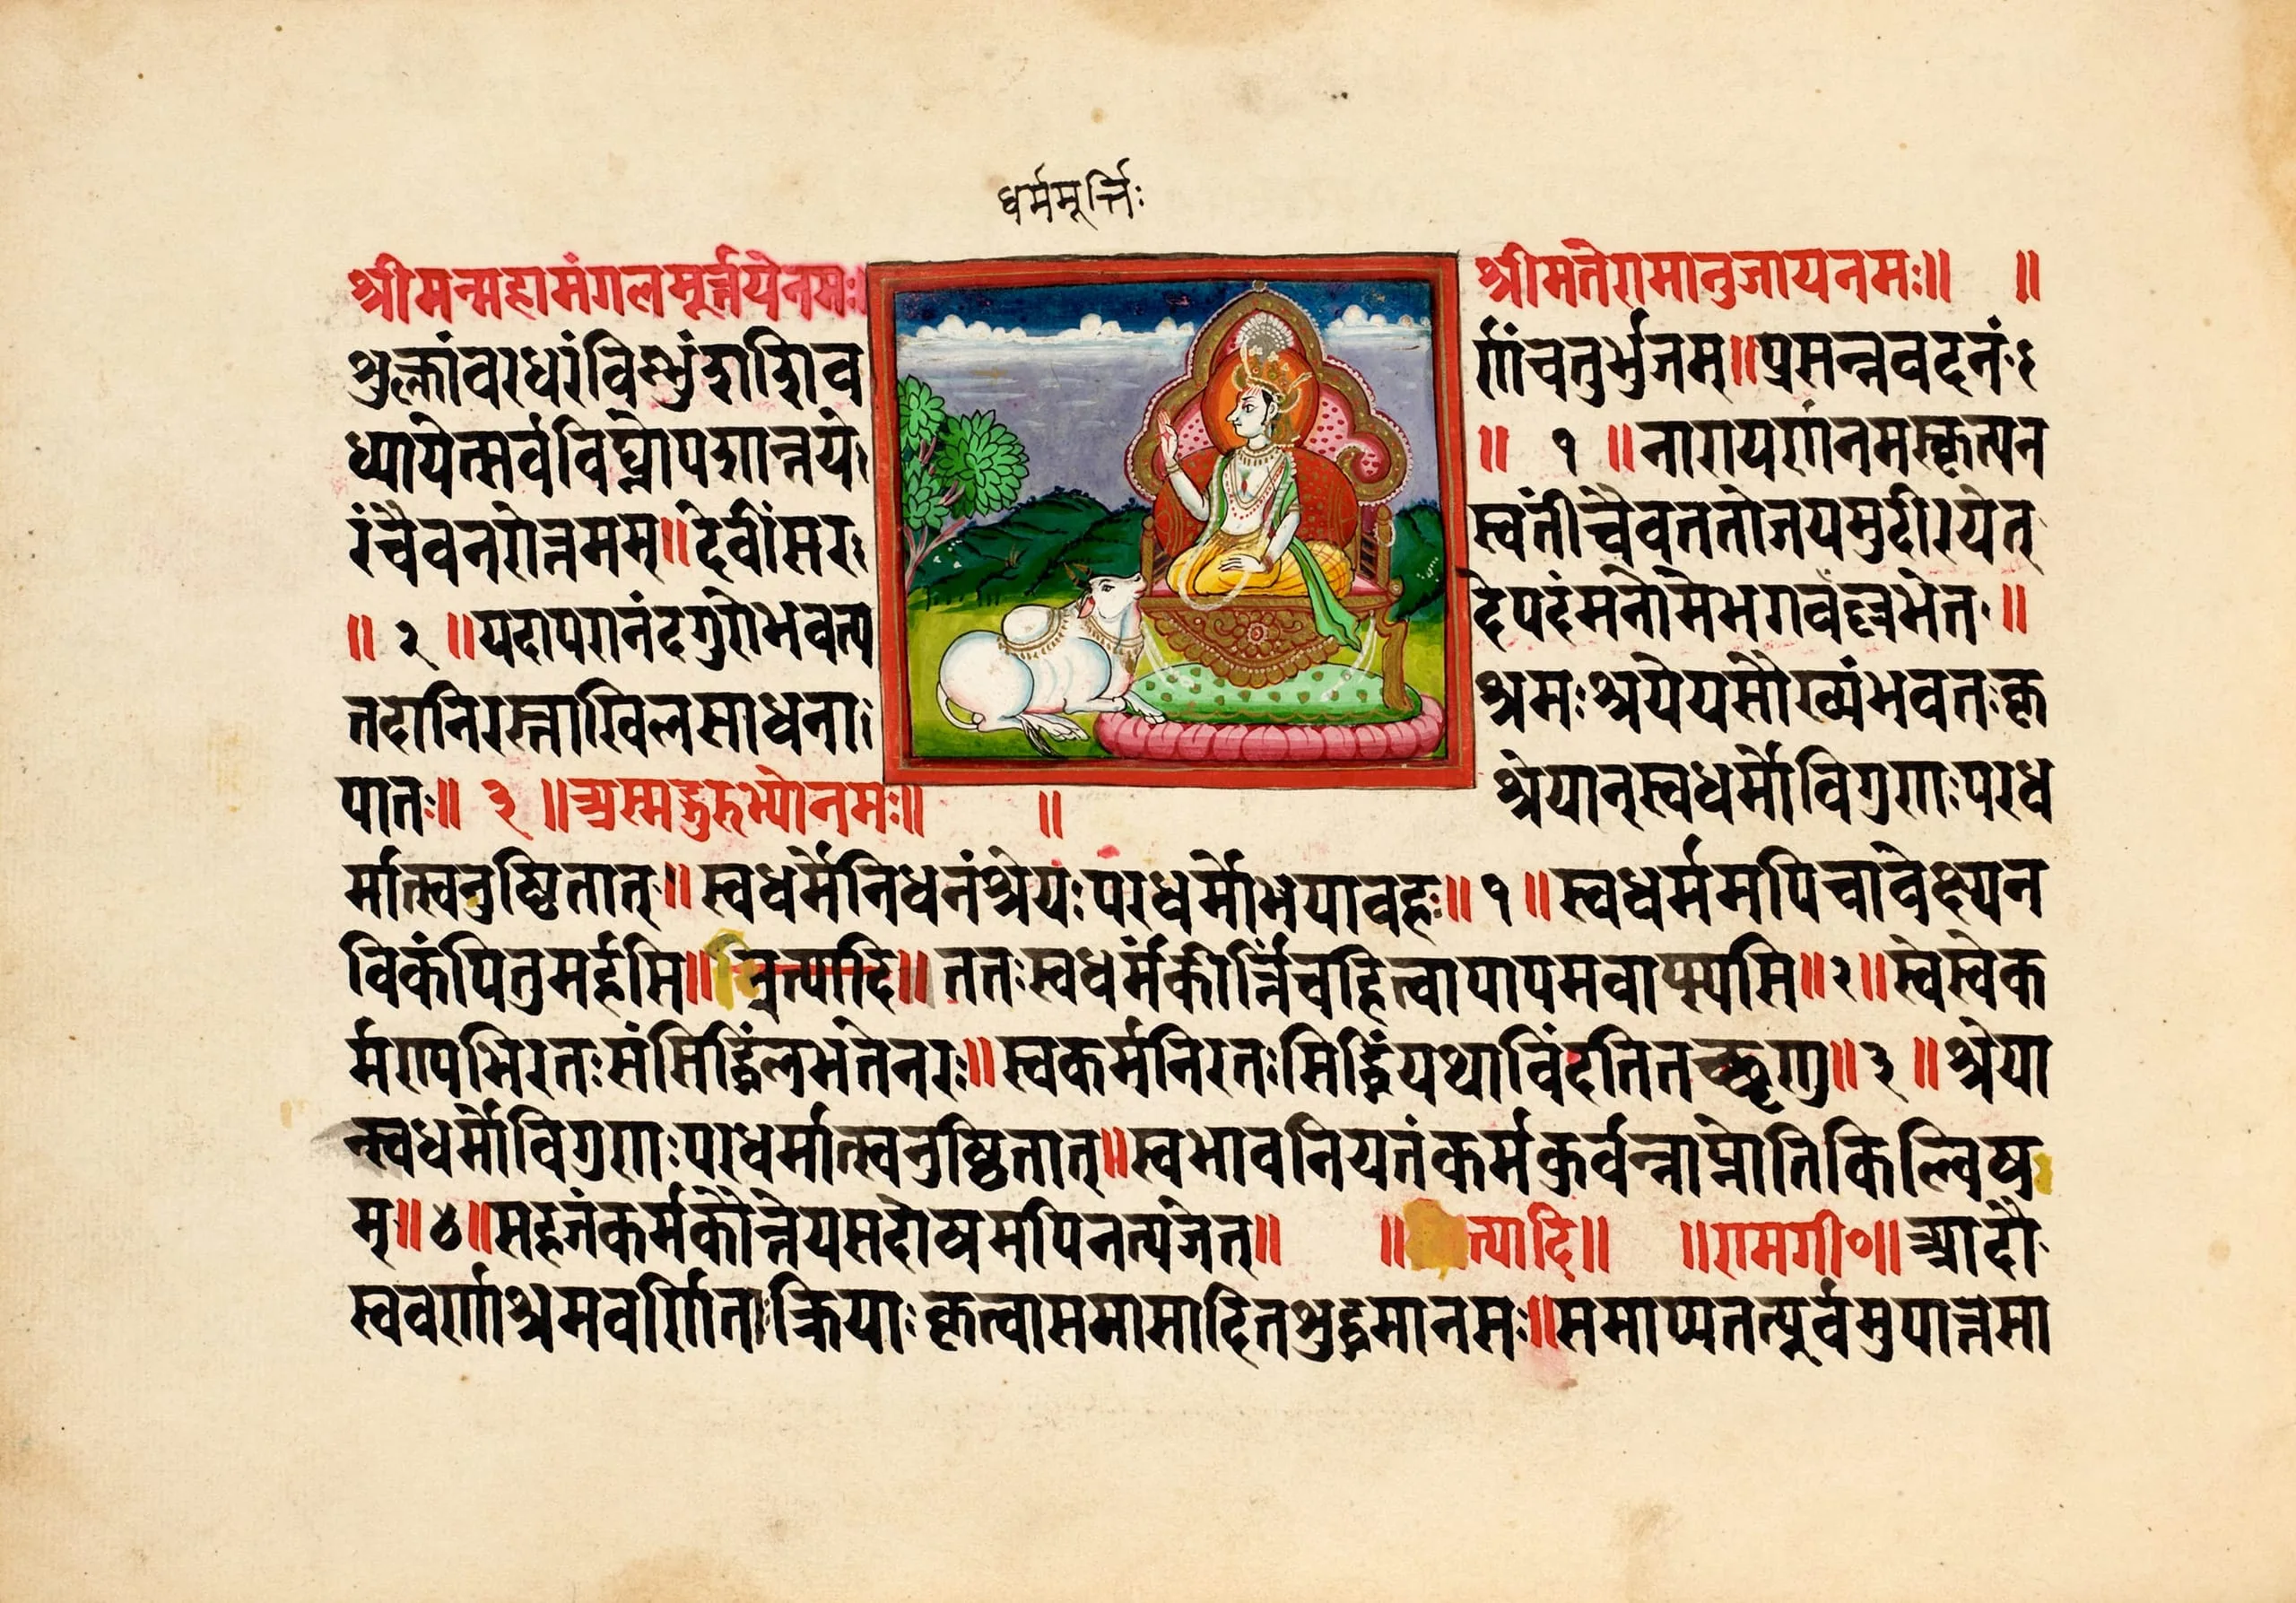 धर्ममूर्त्तिः
श्रीमन्महामंगलमूर्त्तयेनमः श्रीमतेरामानुजायनमः॥ ॥
शुक्लांवरधरंविष्णुंशशिव र्णंचतुर्भुजम्॥प्रसन्नवदनं
ध्यायेत्सर्वविघ्नोपशान्तये ॥ १ ॥नारायणंनमस्कृत्यन
रंचैवनरोत्तमम्॥देवींसर स्वतींचैवततोजयमुदीरयेत्
॥ २ ॥यदापरानंदगुरोभवत्प देपदंमनोमेभगवंल्लभेत॥
तदानिरस्ताखिलसाधना श्रमःश्रयेयसौख्यंभवतःकृ
पातः॥ ३ ॥अस्मद्गुरुभ्योनमः॥ ॥ श्रेयान्स्वधर्मोविगुणःपरध
र्मात्स्वनुष्ठितात्॥स्वधर्मेनिधनंश्रेयःपरधर्मोभयावहः॥१॥स्वधर्ममपिचावेक्ष्यन
विकंपितुमर्हसि॥ त्यादि॥ततःस्वधर्मंकीर्त्तिंचहित्वापापमवाप्स्यसि॥२॥स्वेस्वेक
र्मण्यभिरतःसंसिद्धिंलभतेनरः॥स्वकर्मनिरतःसिद्धिंयथाविंदतितच्छृणु॥३॥श्रेया
न्स्वधर्मोविगुणःपरधर्मात्स्वनुष्ठितात्॥स्वभावनियतंकर्मकुर्वन्नाप्नोतिकिल्विष
म्॥४॥सहजंकर्मकौन्तेयसदोषमपिनत्यजेत्॥ ॥ त्यादि॥ ॥रामगी०॥आदौ
स्ववर्णाश्रमवर्णिताःक्रियाःकृत्वासमासादितशुद्धमानसः॥समाप्यतत्पूर्वमुपात्तसा